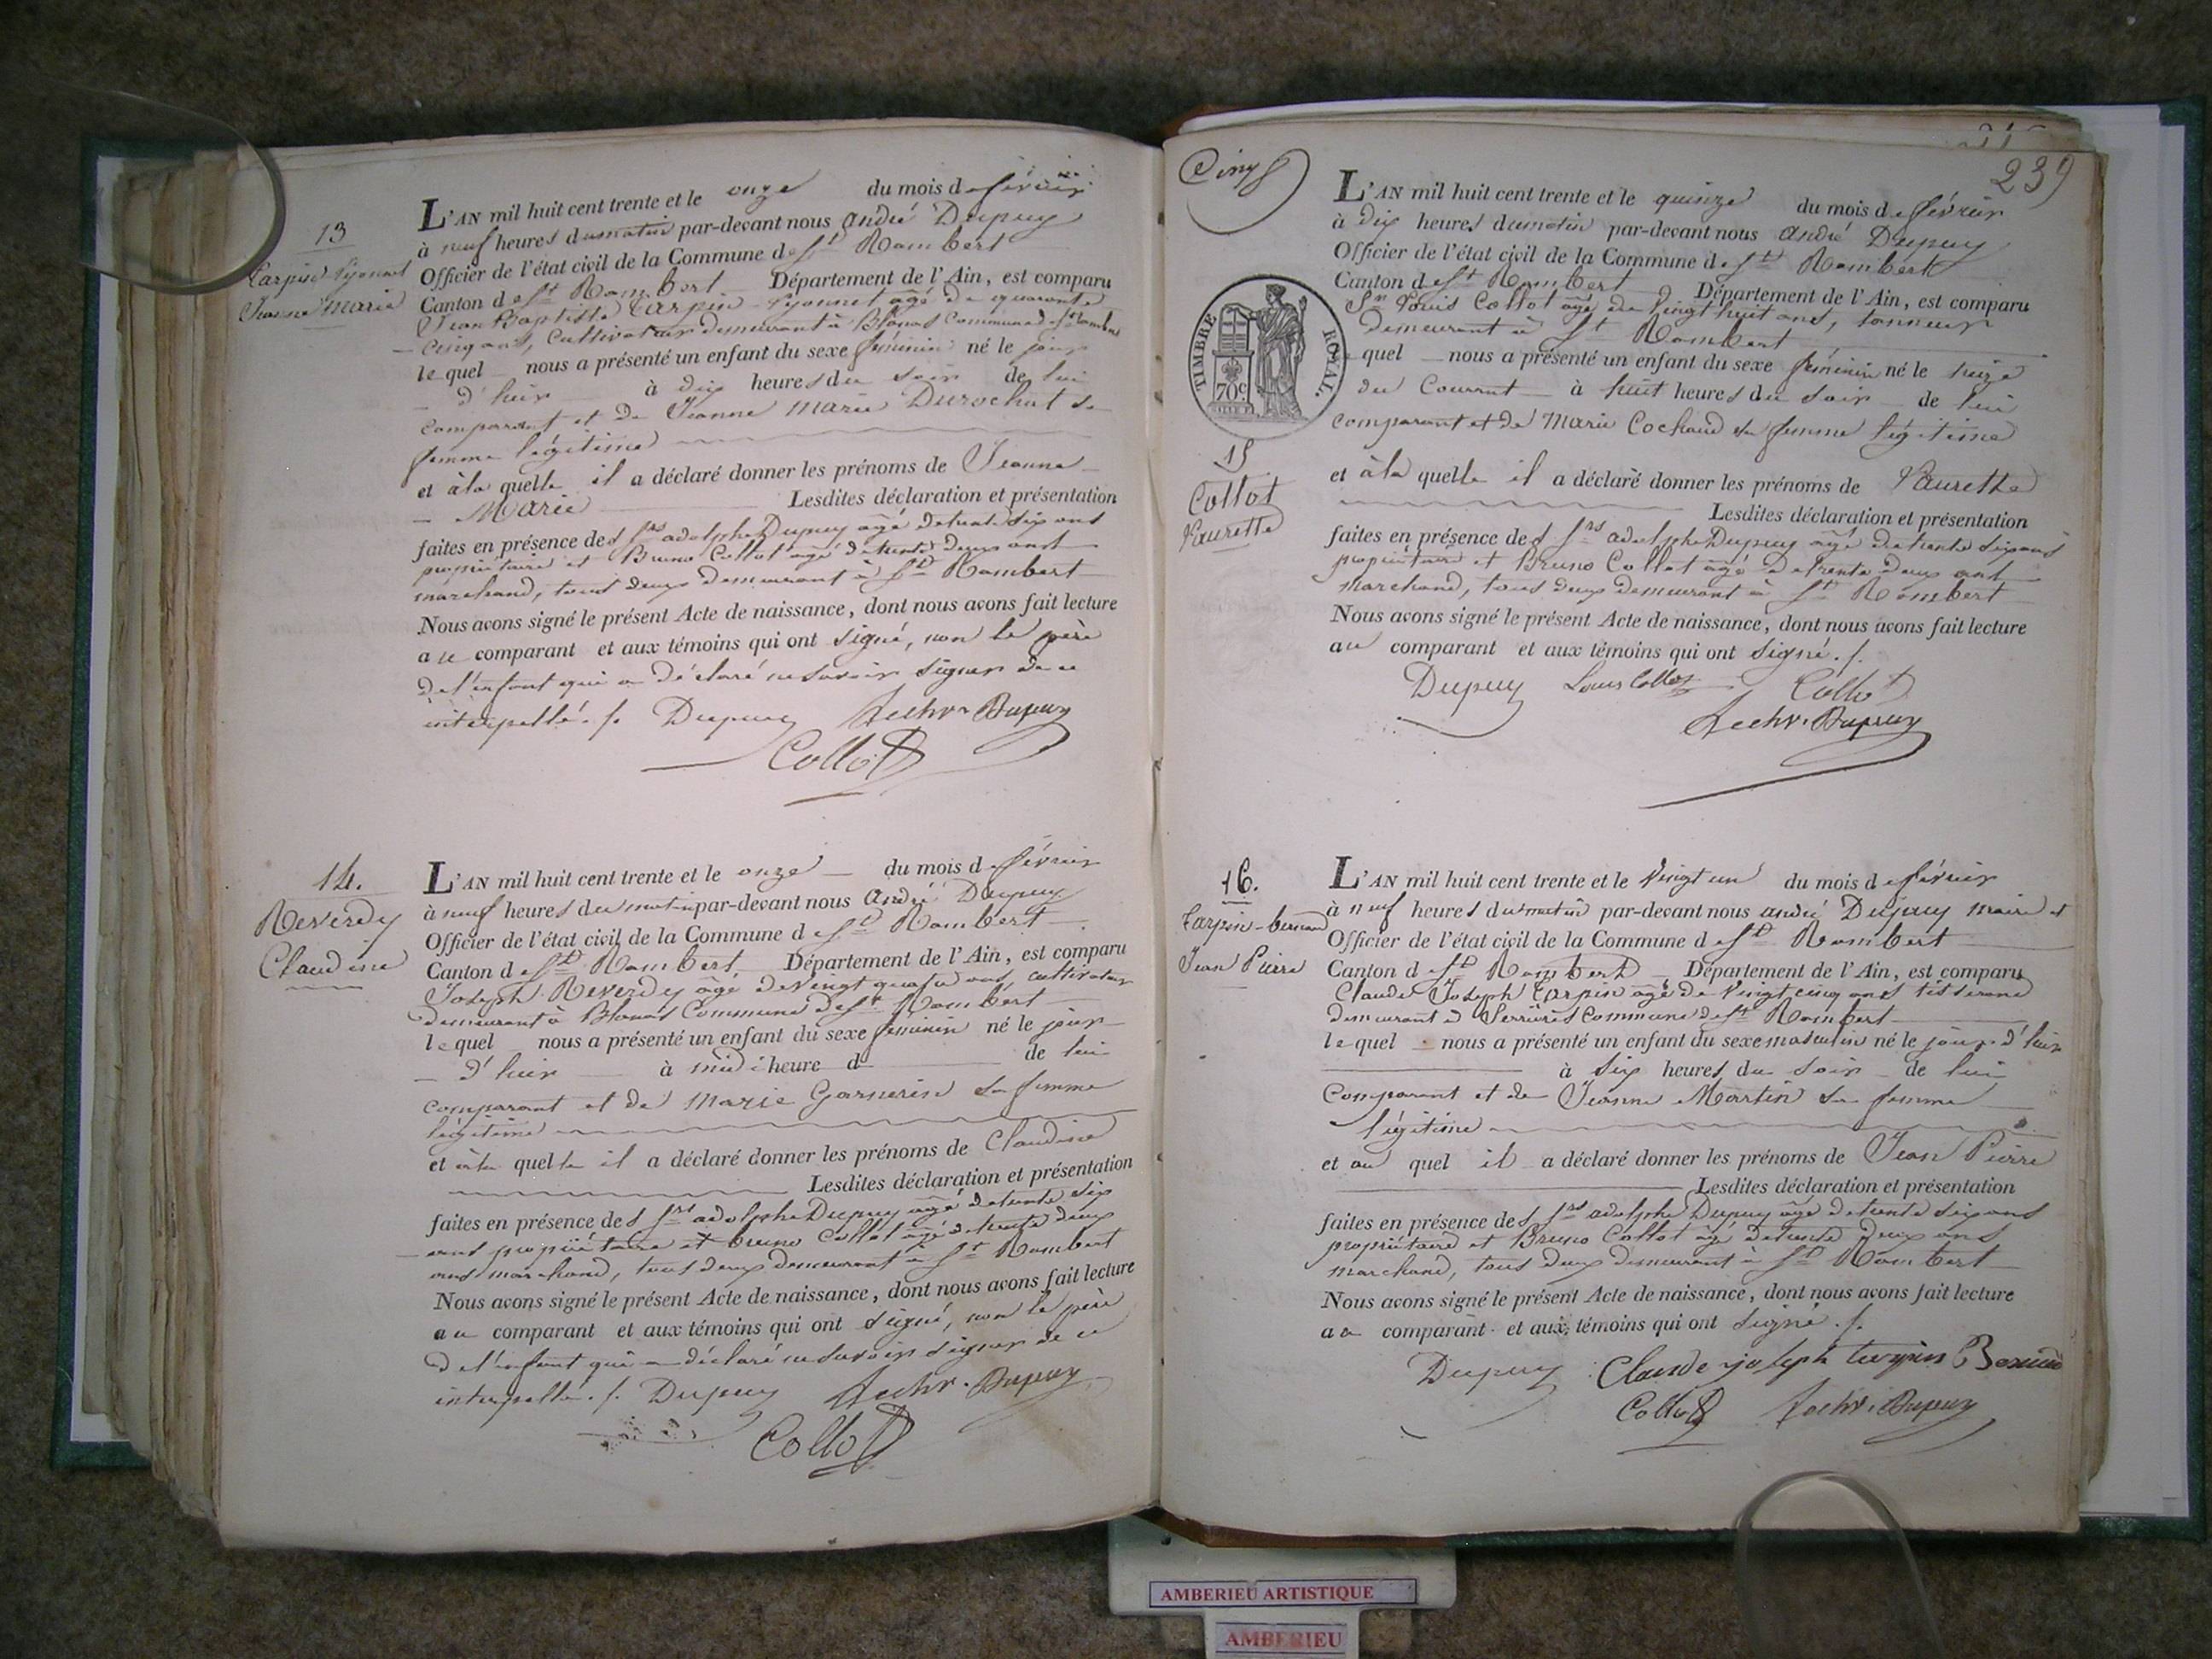 13
Carpin Lyonnet
Jeanne Marie
L'AN mil huit cent trente et le onze du mois de février
à neuf heures du matin par-devant nous André Dupuy
Officier de l'état civil de la Commune de St Rambert
Canton de St Rambert Département de l'Ain, est comparu
Jean Baptiste Carpin Lyonnet âgé de quarante
cinq ans, Cultivateur demeurant à Blanas Commune de St Rambert
lequel nous a présenté un enfant du sexe féminin né le jour
d'hier à dix heures du soir de lui
comparant et de Jeanne Marie Durochat sa
femme légitime
et à la quelle il a déclaré donner les prénoms de Jeanne
Marie Lesdites déclaration et présentation
faites en présence des Srs adolphe Dupuy âgé de trente six ans
propriétaire et Bruno Collot âgé de trente deux ans
marchand, tous deux demeurant à St Rambert
Nous avons signé le présent Acte de naissance, dont nous avons fait lecture
au comparant et aux témoins qui ont signé, non le père
de l'enfant qui a déclaré ne savoir signer de ce
interpellé. Dupuy Dupuy
Collot
14.
Reverdy
Claudine
L'AN mil huit cent trente et le onze du mois de février
à neuf heures du matin par-devant nous André Dupuy
Officier de l'état civil de la Commune de St Rambert
Canton de St Rambert Département de l'Ain, est comparu
Joseph Reverdy âgé de vingt quatre ans, cultivateur
demeurant à Blanas Commune de St Rambert
lequel nous a présenté un enfant du sexe féminin né le jour
d'hier à midi heure d de lui
comparant et de Marie Garnerin sa femme
légitime
et à la quelle il a déclaré donner les prénoms de Claudine
Lesdites déclaration et présentation
faites en présence des Srs adolphe Dupuy âgé de trente six
ans propriétaire et bruno Collot âgé de trente deux
ans marchand, tous deux demeurant à St Rambert
Nous avons signé le présent Acte de naissance, dont nous avons fait lecture
au comparant et aux témoins qui ont signé, non le père
de l'enfant qui a déclaré ne savoir signer de ce
interpellé. Dupuy Dupuy
Collot
Cinq
239
L'AN mil huit cent trente et le quinze du mois de février
à dix heures du matin par-devant nous André Dupuy
Officier de l'état civil de la Commune de St Rambert
Canton de St Rambert Département de l'Ain, est comparu
Sr Louis Collot âgé de vingt huit ans, tanneur
demeurant à St Rambert
TIMBRE ROYAL.
70c
quel nous a présenté un enfant du sexe féminin né le treize
du Courant à huit heures du soir de lui
comparant et de Marie Cochaud sa femme légitime
15
Collot
Laurette
et à la quelle il a déclaré donner les prénoms de Laurette
Lesdites déclaration et présentation
faites en présence des Srs adolphe Dupuy âgé de trente six ans
propriétaire et Bruno Collot âgé de trente deux ans
marchand, tous deux demeurant à St Rambert
Nous avons signé le présent Acte de naissance, dont nous avons fait lecture
au comparant et aux témoins qui ont signé.
Dupuy Louis Collot Collot
Dupuy
16.
Carpin-bernard
Jean Pierre
L'AN mil huit cent trente et le vingt un du mois de février
à neuf heures du matin par-devant nous andré Dupuy maire et
Officier de l'état civil de la Commune de St Rambert
Canton de St Rambert Département de l'Ain, est comparu
Claude Joseph Carpin âgé de vingt cinq ans tisserand
demeurant à Serrières Commune de St Rambert
lequel nous a présenté un enfant du sexe masculin né le jour d'hier
à six heures du soir de lui
Comparant et de Jeanne Martin sa femme
légitime
et au quel il a déclaré donner les prénoms de Jean Pierre
Lesdites déclaration et présentation
faites en présence des Srs adolphe Dupuy âgé de trente six ans
propriétaire et Bruno Collot âgé de trente deux ans
marchand, tous deux demeurant à St Rambert
Nous avons signé le présent Acte de naissance, dont nous avons fait lecture
au comparant et aux témoins qui ont signé.
Dupuy Claude joseph Carpin Bernard
Collot Dupuy
AMBERIEU ARTISTIQUE
AMBERIEU